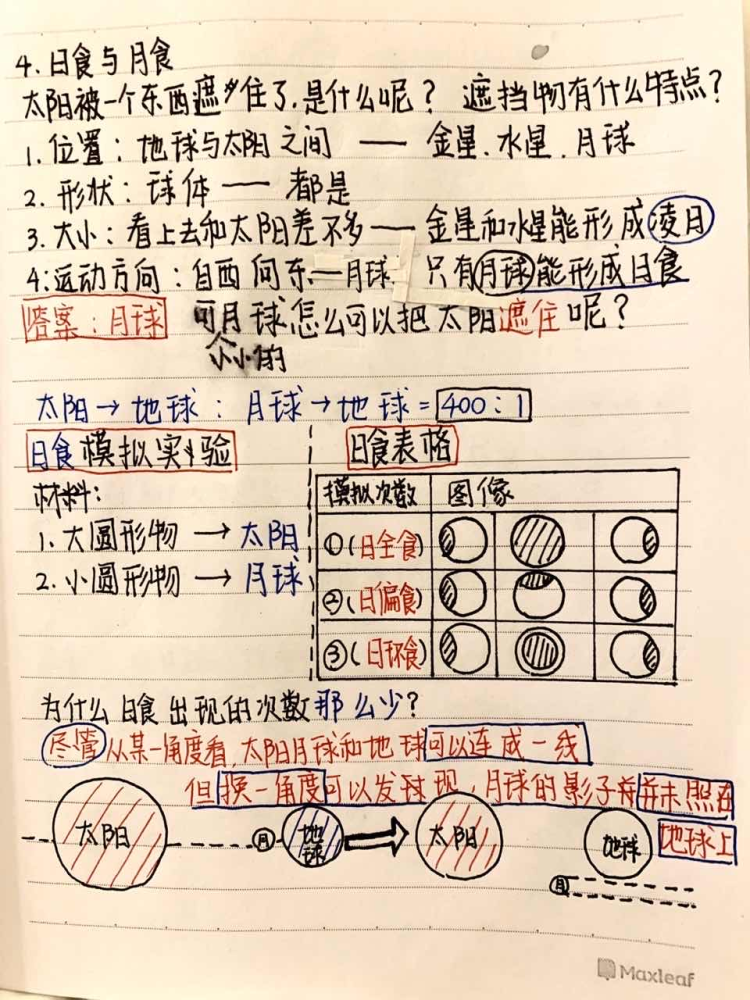 4. 日食与月食
太阳被一个东西遮住了,是什么呢? 遮挡物有什么特点?
1. 位置: 地球与太阳之间 —— 金星、水星、月球
2. 形状: 球体 —— 都是
3. 大小: 看上去和太阳差不多 —— 金星和水星能形成凌日
4. 运动方向: 自西向东 — 月球 只有月球能形成日食
答案: 月球 可月球怎么可以把太阳遮住呢?
小小的
太阳→地球: 月球→地球 = 400:1
日食模拟实验 日食表格
材料:
1. 大圆形物 → 太阳
2. 小圆形物 → 月球
模拟次数 图像
①(日全食)
②(日偏食)
③(日环食)
为什么日食出现的次数那么少?
尽管从某一角度看,太阳月球和地球可以连成一线
但换一角度可以发现,月球的影子并未照在
地球上
太阳 月 地球 太阳 地球
月
Maxleaf